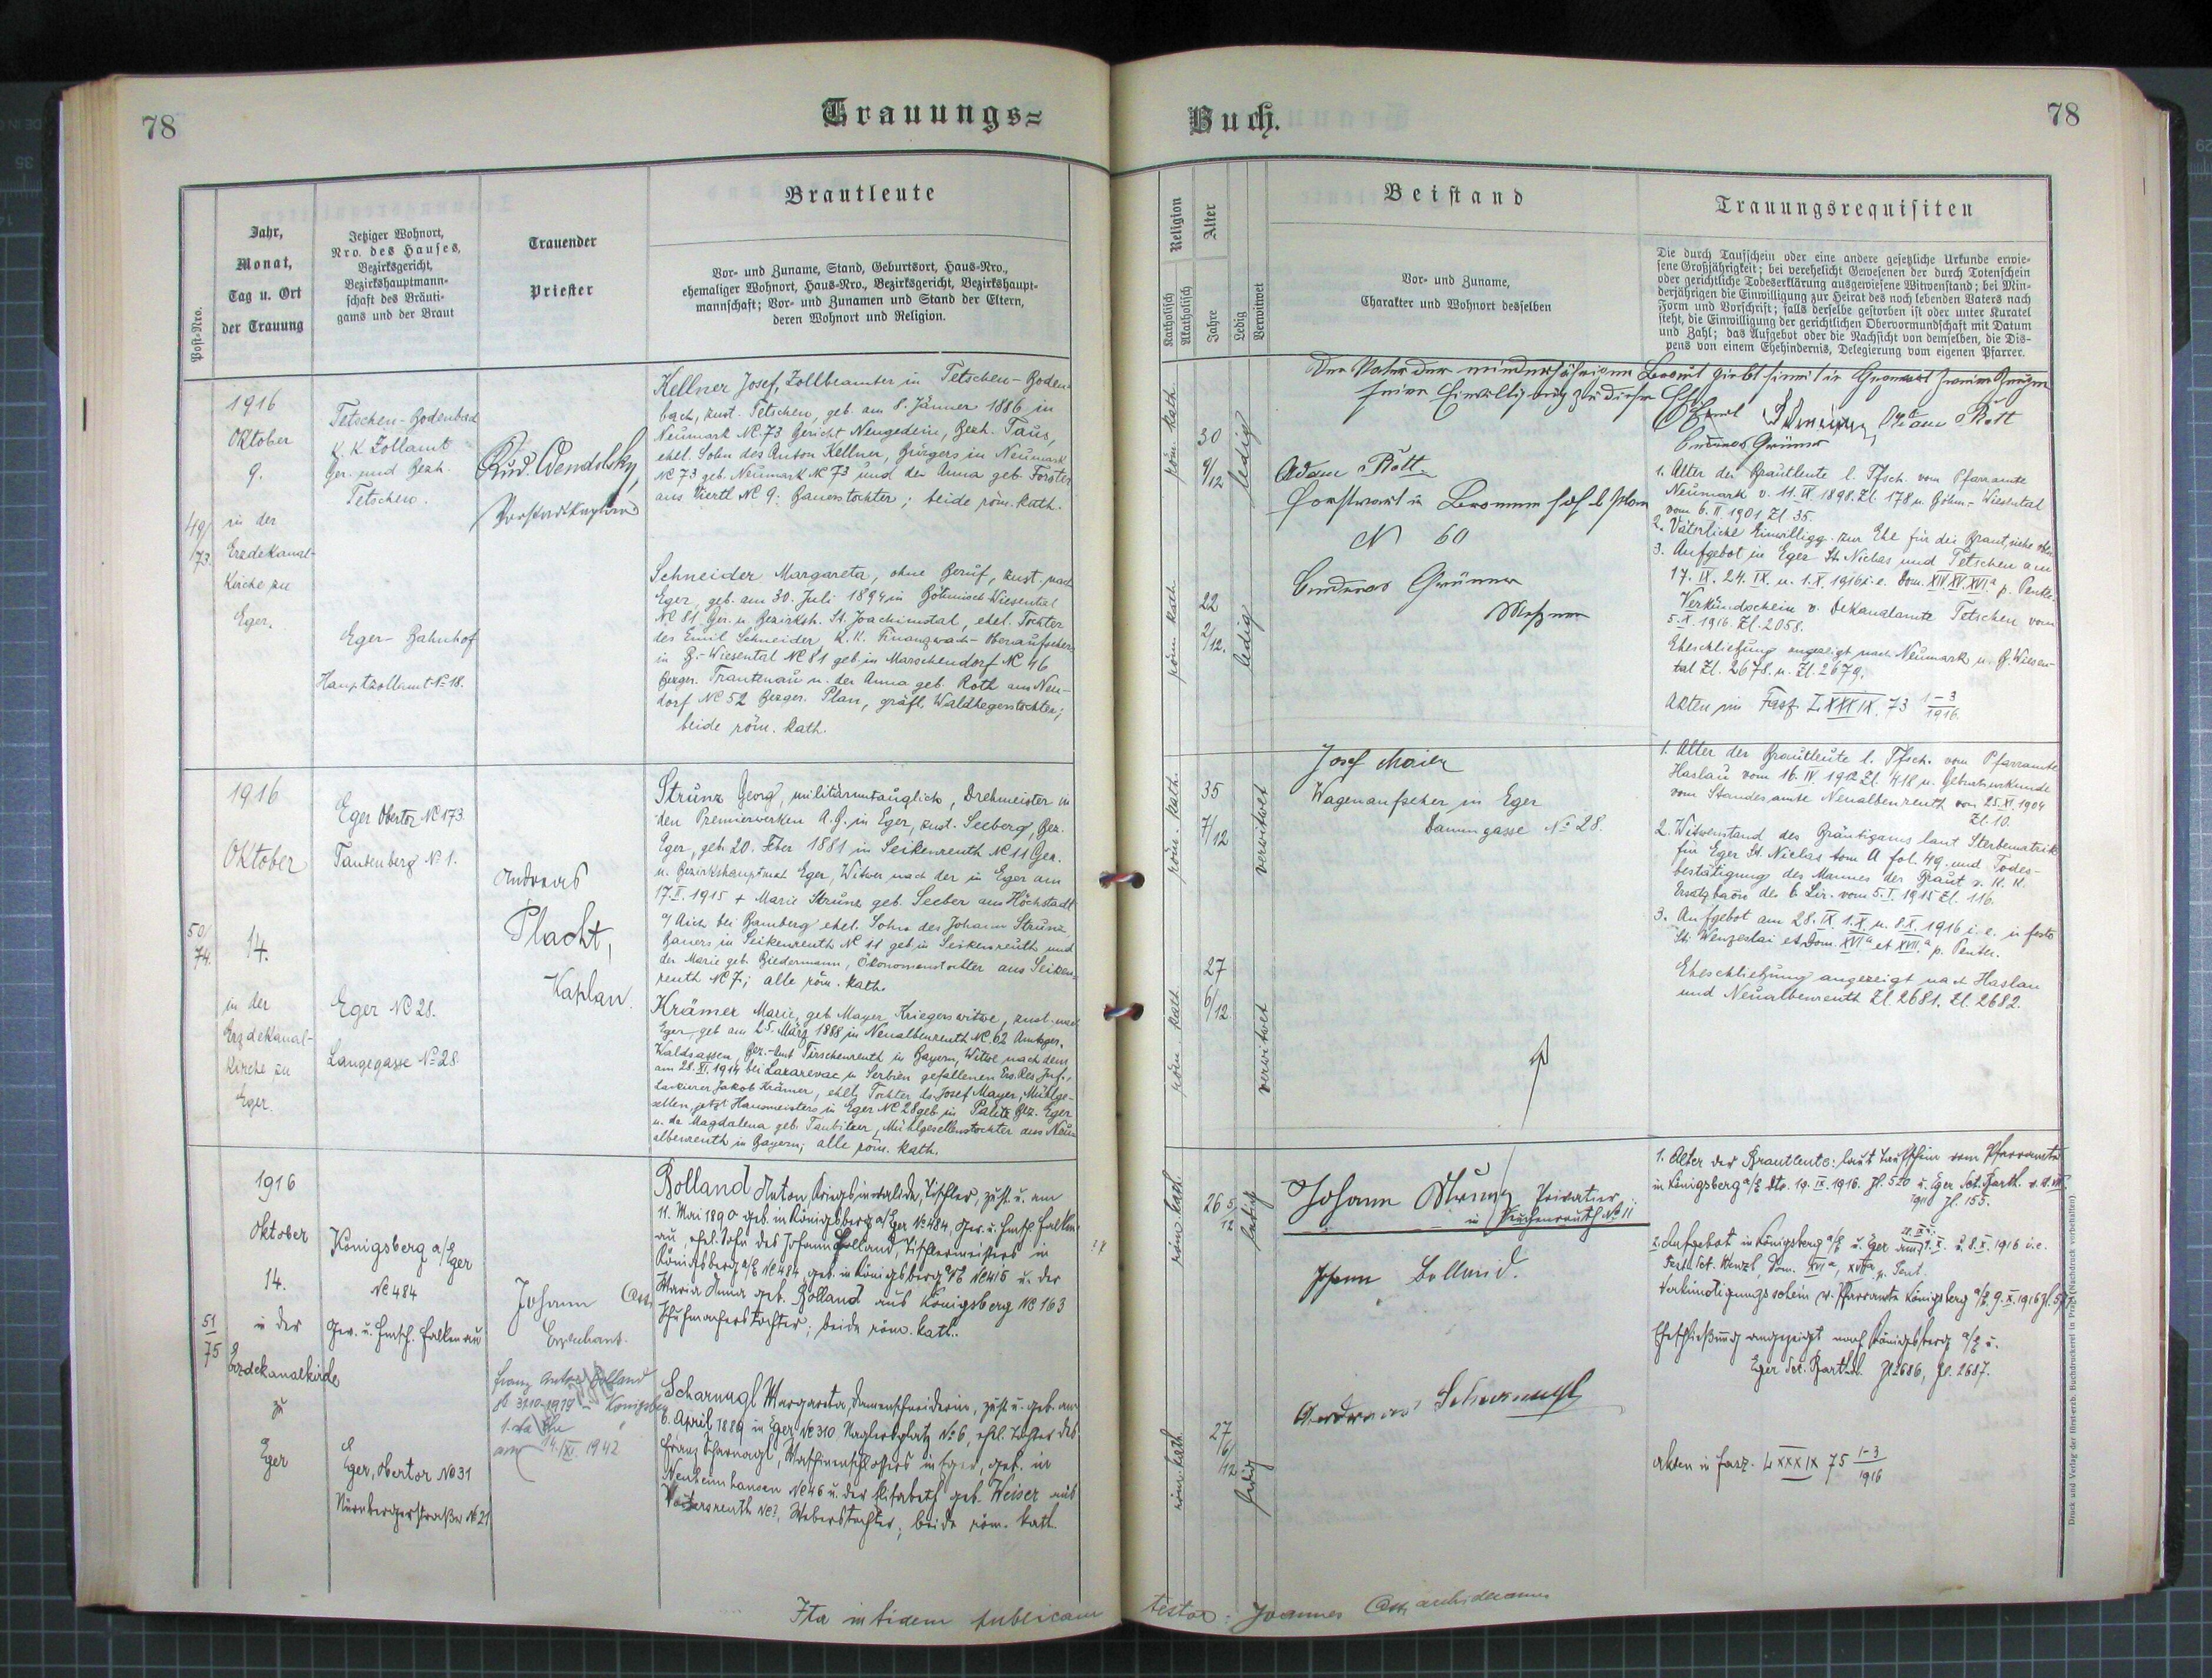 78
Trauungs=
Post-Nro.
Jahr,
Monat,
Tag u. Ort
der Trauung
Jetziger Wohnort,
Nro. des Hauses,
Bezirksgericht,
Bezirkshauptmann-
schaft des Bräuti-
gams und der Braut
Trauender
Priester
Brautleute
Vor- und Zuname, Stand, Geburtsort, Haus-Nro.,
ehemaliger Wohnort, Haus-Nro., Bezirksgericht, Bezirkshaupt-
mannschaft; Vor- und Zunamen und Stand der Eltern,
deren Wohnort und Religion.
49/
73.
1916
Oktober
9.
in der
Erzdekanal-
Kirche zu
Eger.
Tetschen-Bodenbach
K. K. Zollamt
Ger. und Bezh.
Tetschen.
Eger- Bahnhof
Hauptzollamt № 18.
Rud. Wendolsky,
Kellner Josef, Zollbeamter in Tetschen-Boden-
bach, zust. Tetschen, geb. am 8. Jänner 1886 in
Neumark № 73 Gericht Neugedein, Bezh. Taus,
ehel. Sohn des Anton Kellner, Bürgers in Neumark
№ 73 geb. Neumark № 73 und der Anna geb. Forster
aus Viertl № 9: Bauerstochter; beide röm. kath.
Schneider Margareta, ohne Beruf, zust. nach
Eger, geb. am 30. Juli 1894 in Böhmisch Wiesental
№ 81 Ger. u. Bezirksh. St. Joachimstal, ehel. Tochter
des Emil Schneider, K. K. Finanzwach-Oberaufsehers
in B.-Wiesental № 81 geb. in Marschendorf № 46
Bezger. Trautenau u. der Anna geb. Roth aus Neu-
dorf № 52 Bezger. Plan, gräfl. Waldhegerstochter;
beide röm. kath.
50/
74.
1916
Oktober
14.
in der
Erzdekanal-
Kirche zu
Eger.
Eger Obertor № 173.
Eger № 28.
Langegasse № 28
Andreas
Placht,
Kaplan.
Strunz Georg, militäruntauglich, Drehmeister in
den Premierwerken A.G. in Eger, zust. Seeberg, Bez.
Eger, geb. 20. Feber 1881 in Seikenreuth № 11 Ger.
u. Bezirkshauptmat Eger, Witwer nach der in Eger am
17. II. 1915 + Marie Strunz geb. Seeber aus Höchstadt
a/ Aich bei Bamberg ehel. Sohn des Johann Strunz,
Bauers in Seikenreuth № 11 geb. in Seikenreuth und
der Marie geb. Biedermann, Ökonomenstochter aus Seiken-
reuth № 7; alle röm. kath.
Krämer Marie, geb. Mayer, Kriegerswitwe, zust. nach
Eger, geb. am 25. März 1888 in Neualbenreuth № 62 Amtsger.
Waldsassen, Bez.-Amt Tirschenreuth in Bayern, Witwe nach dem
am 28. XI. 1914 bei Lazarevac in Serbien gefallenen Ers. Res. Inf.,
Lackierer Jakob Krämer, ehel. Tochter des Josef Mayer, Mühlge-
sellen, jetzt Hausmeisters in Eger № 28 geb. in Palitz Bez. Eger
u. der Magdalena geb. Taubitzer, Mühlgesellenstochter aus Neu-
albenreuth in Bayern; alle röm. kath.
51
75
1916
Oktober
14.
in der
Erzdekanalkirche
zu
Eger
Königsberg a/Eger
№ 484
Ger. u. Hmsch. Falkenau
Eger, Obertor № 31
Nürnbergerstraße № 21
Johann
Erzdechant.
14. XI. 1942
Bolland Anton, Kriegsinvalide, Tischler, zust. u. am
11. Mai 1890 geb. in Königsberg a/Eger № 484, Ger. u. Hmsch. Falken-
au, ehel. Sohn des Johann Bolland, Tischlermeisters in
Königsberg a/E № 484, geb. in Königsberg a/E № 415 u. der
Maria Anna geb. Bolland aus Königsberg № 163
Schuhmacherstochter; beide röm. kath.
Scharnagl Margareta, Damenschneiderin, zust. u. geb. am
6. April 1889 in Eger № 310 Naglersplatz № 6, ehel. Tochter des
Franz Scharnagl, Maschinenschlossers in Eger, geb. in
№ 46 u. der Elisabeth geb. Weiser aus
Weberstochter; beide röm. kath.
Ita in fidem publicam
Buch.
78
Religion
Katholisch
Akatholisch
Alter
Jahre
Ledig
Verwitwet
Beistand
Vor- und Zuname,
Charakter und Wohnort desselben
Trauungsrequisiten
Die durch Taufschein oder eine andere gesetzliche Urkunde erwie-
sene Großjährigkeit; bei verehelicht Gewesenen der durch Totenschein
oder gerichtliche Todeserklärung ausgewiesene Witwenstand; bei Min-
derjährigen die Einwilligung zur Heirat des noch lebenden Vaters nach
Form und Vorschrift; falls derselbe gestorben ist oder unter Kuratel
steht, die Einwilligung der gerichtlichen Obervormundschaft mit Datum
und Zahl; das Aufgebot oder die Nachsicht von demselben, die Dis-
pens von einem Ehehindernis, Delegierung vom eigenen Pfarrer.
Der Vater der minderjährigen Braut giebt hiemit in Gegenwart zweier Zeugen
seine Einwilligung zu dieser Ehe
Adam Rott
Andreas Grüner
röm. kath.
30
9/12
ledig
Adam Rott
Forstwart in
№ 60
röm. kath.
22
2/12.
ledig
Andreas Grüner
Meßner
1. Alter der Brautleute l. Tfsch. vom Pfarramte
Neumark v. 11. IX. 1898. Zl. 178 u. Böhm.-Wiesental
vom 6. II. 1901 Zl. 35.
2. Väterliche Einwilligg. zur Ehe für die Braut, siehe oben
3. Aufgebot in Eger St. Niclas und Tetschen am
17. IX. 24. IX. u. 1. X. 1916 i. e. Dom. XIV. XV. XVI a p. Pentk.
Verkündschein v. Dekanalamte Tetschen vom
5. X. 1916. Zl. 2058.
Eheschließung angezeigt nach Neumark u. B. Wiesen-
tal Zl. 2678. u. Zl. 2679.
Akten im Fasz. LXXXIX. 73 1-3
1916.
röm. kath.
35
7/12
verwitwet
Josef Maier
Wagenaufseher in Eger
Dammgasse № 28.
röm. kath.
27
6/12
verwitwet
1. Alter der Brautleute l. Tfsch. vom Pfarramte
Haslau vom 16. IV. 1902 Zl. 418 u. Geburtsurkunde
vom Standesamte Neualbenreuth vom 25. XI. 1904
Zl. 10.
2. Witwenstand des Bräutigams laut Sterbematrik
für Eger St. Niclas tom A fol. 49. und Todes-
bestätigung des Mannes der Braut v. K. K.
vom 5. I. 1915 Zl. 116.
3. Aufgebot am 28. IX. 1. X. u. 8. X. 1916 i. e. in festo
St. Wenzeslai et Dom. XVI a et XVII a p. Penter.
Eheschließung angezeigt nach Haslau
und Neualbenreuth Zl. 2681. Zl. 2682.
röm. kath.
26 5/12
ledig
Johann Strunz Privatier
in № 11
Johann Bolland.
röm. kath.
27
6/12
ledig
Andreas Scharnagl
1. Alter der Brautleute: laut Taufschein vom Pfarramte
in Königsberg a/E dto. 19. IX. 1916. Zl. 520 u. Eger Sct. Barth.
Zl. 155.
2. Aufgebot in Königsberg a/E u. Eger am 1. X. u. 8. X. 1916 i. e.
Fest Sct. Wenzl, Dom. XVI a, XVII a p. Pent.
Verkündigungsschein v. Pfarramte Königsberg a/E 9. X. 1916
Eheschließung angezeigt nach Königsberg a/E u.
Eger Sct. Barthol. Zl. 2686, Zl. 2687.
Akten in Fasz. LXXXIX 75 1-3
1916
testor: Joannes archidecanus
Druck und Verlag der fürst-erzb. Buchdruckerei in Prag. (Nachdruck vorbehalten.)